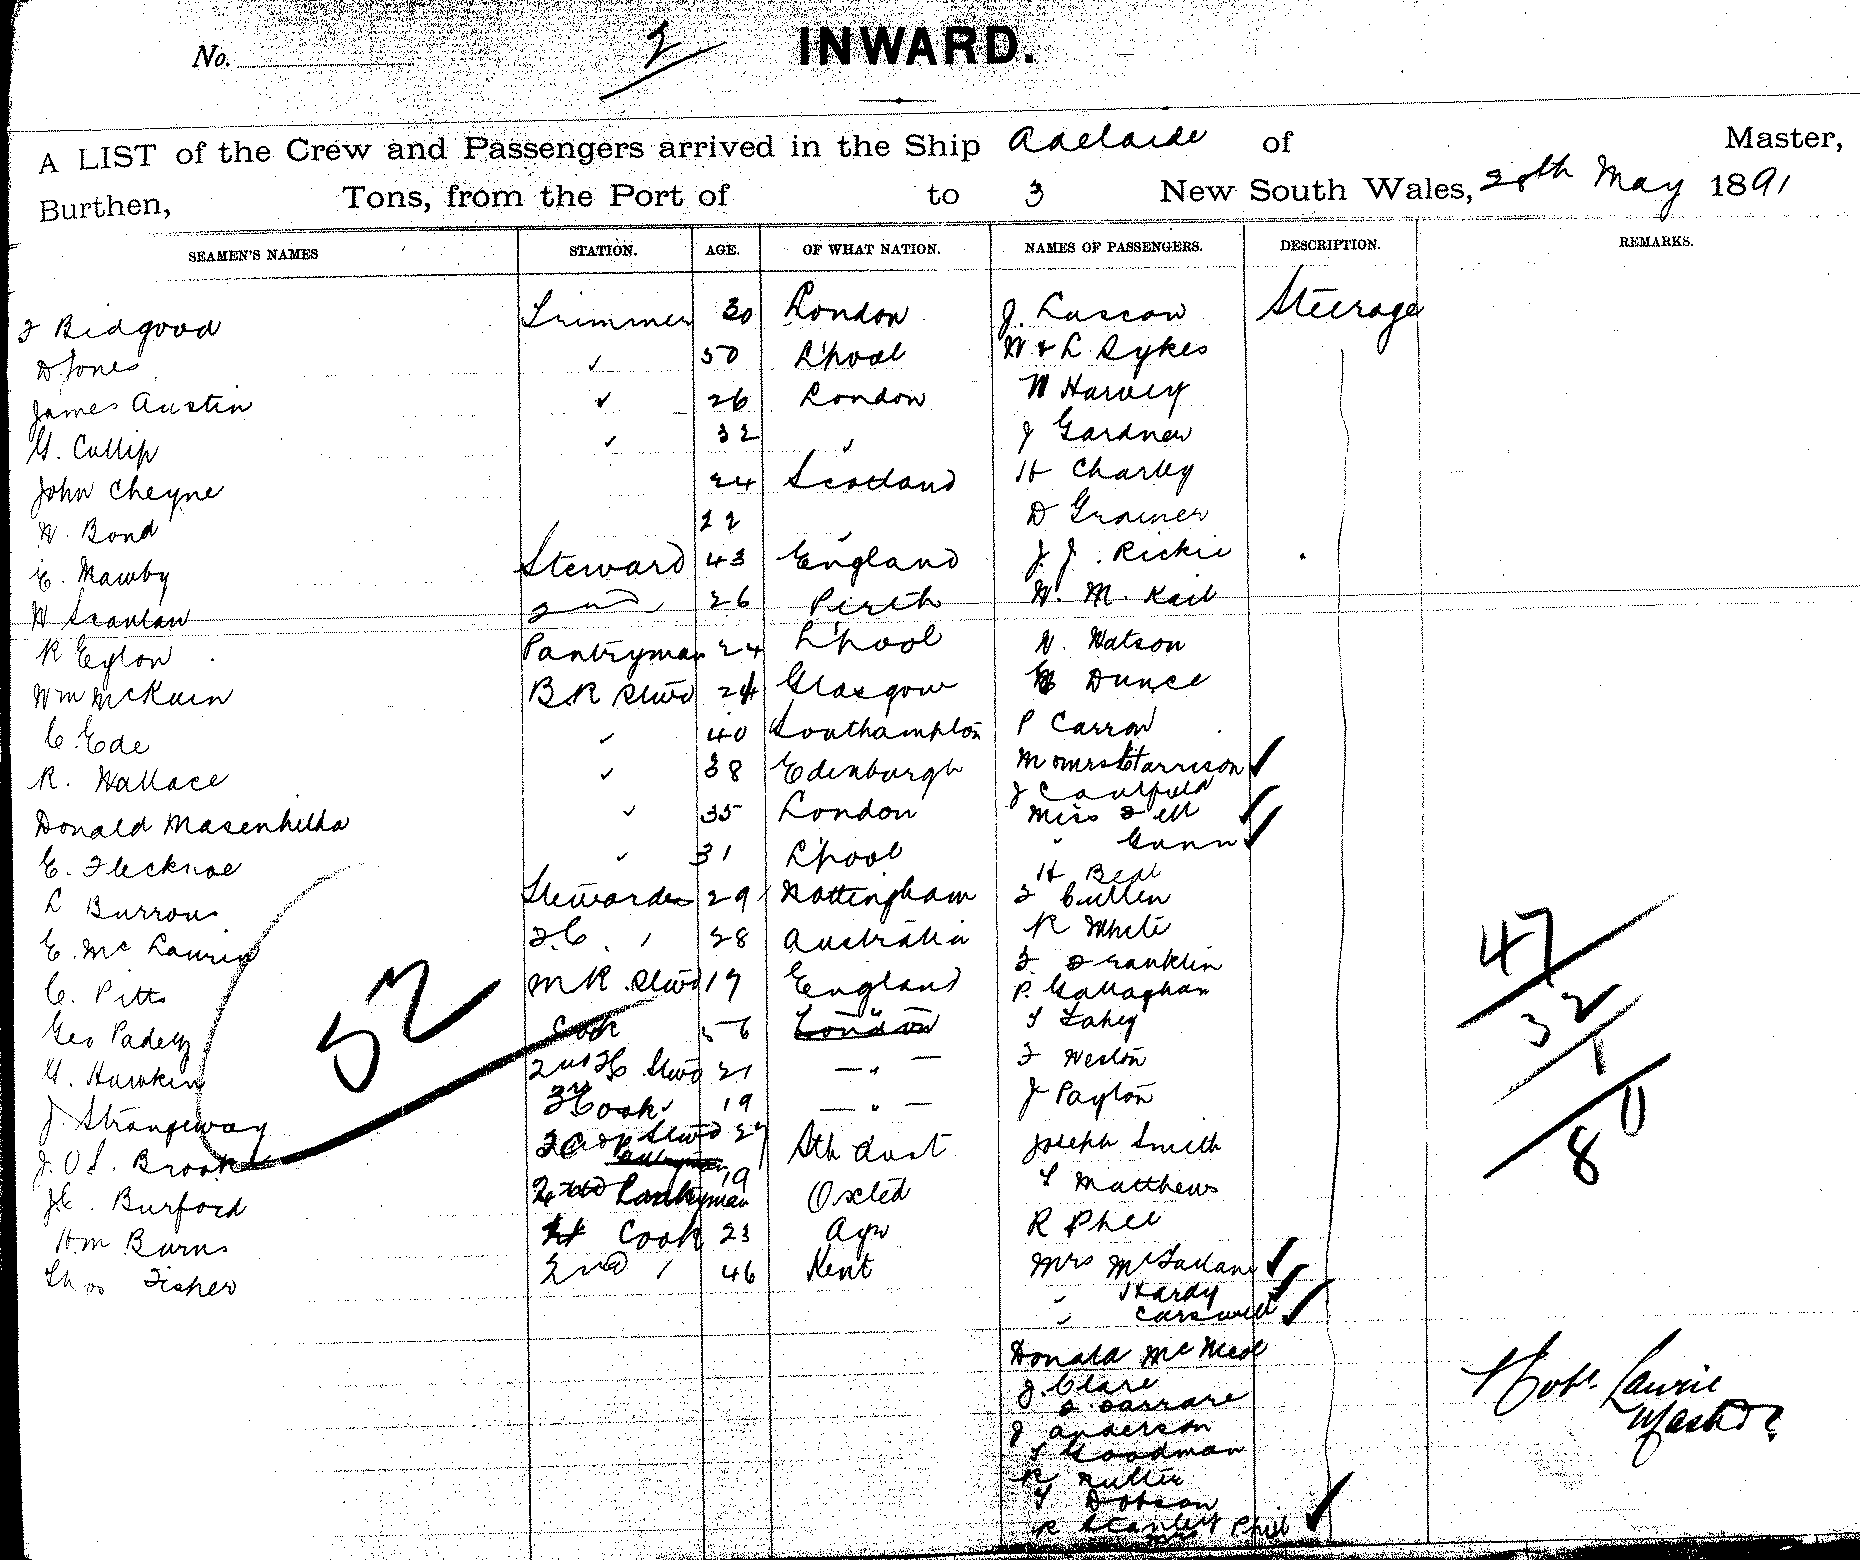 No. 2 INWARD.
A LIST of the Crew and Passengers arrived in the Ship Adelaide of Master,
Burthen, Tons, from the Port of to 3 New South Wales, 28th May 1891
SEAMEN'S NAMES STATION. AGE. OF WHAT NATION. NAMES OF PASSENGERS. DESCRIPTION. REMARKS.
F Bidgood Trimmer 30 London J. Luscow Steerage
D Jones ✓ 50 L'pool W & L Sykes
James Austin ✓ 26 London W Harvey
G. Cullip ✓ 32 ✓ J Gardner
John Cheyne 24 Scotland H Charley
W. Bond 22 D Grainer
E. Mawby Steward 43 England J. J. Rickie
W Scanlan 2nd 26 Perth W. M. Kail
R Eglon Pantryman 24 L'pool W. Watson
Wm McKuin B.R Stwd 24 Glasgow Dunce
C. Ede ✓ 40 Southampton P Carron
R. Wallace ✓ 38 Edinburgh M & Mrs Harrison ✓
J Caulfield
Donald ✓ 35 London Miss Fell ✓
" Gunn ✓
E. Flecknoe ✓ 31 L'pool H Beal
L Burrows Stewardess 29 Nottingham F Cullen
E. Mc Laurin F.C. " 28 Australia R White
F. Franklin
C. Pitts M R Stwd 19 England P. Gallaghan
Geo Padety Cook 56 London T Fahey
G. Hawkin 2nd Stwd 21 — " — F Weston
J. Strangeway 3rd Cook 19 — " — J Payton
J. O S. Brook Stwd 27 Sth Aust Joseph Smith
J C. Burford 2nd Pantryman 19 Oxted T Matthews
Wm Burns Cook 23 Ayr R Phee
Thos Fisher 2nd " 46 Kent Mrs McFarlane ✓
" Hardy ✓
" Carswell ✓
Donald Mc Neil
J. Clare
J Anderson
T Goodman
R Rutter
T Dobson
R Scanlett ✓
52
47
32
1
80
Robt. Laurie
Master